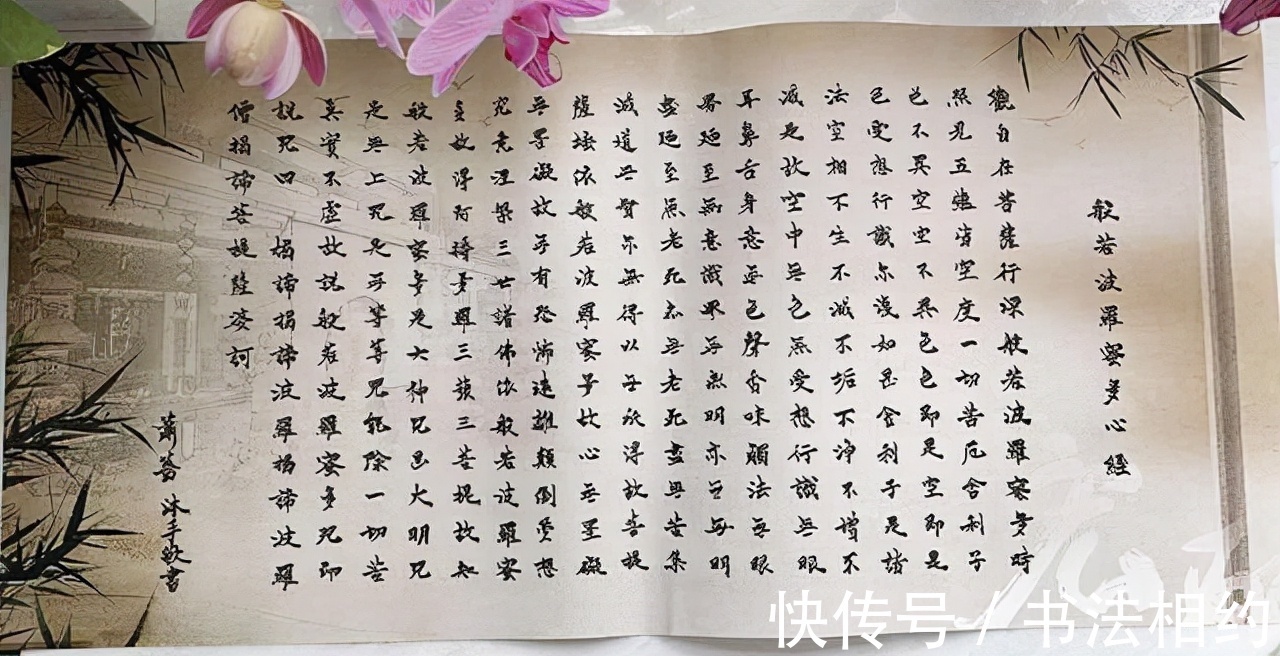 般若波羅蜜多心經
觀自在菩薩行深般若波羅蜜多時
照見五蘊皆空度一切苦厄舍利子
色不異空空不異色色即是空即是
色受想行識亦復如是舍利子是諸
法空相不生不滅不垢不淨不增不
減是故空中無色無受想行識無眼
耳鼻舌身意無色聲香味觸法無眼
界乃至無意識界無無明亦無無明
盡乃至無老死亦無老死盡無苦集
滅道無智亦無得以無所得故菩提
薩埵依般若波羅蜜多故心無罣礙
無罣礙故無有恐怖遠離顛倒夢想
究竟涅槃三世諸佛依般若波羅蜜
多故得阿耨多羅三藐三菩提故知
般若波羅蜜多是大神咒是大明咒
是無上咒是無等等咒能除一切苦
真實不虛故說般若波羅蜜多咒即
說咒曰 揭諦揭諦波羅揭諦波羅
僧揭諦菩提薩婆訶
蕭 沐手敬書
快传号 / 书法相约